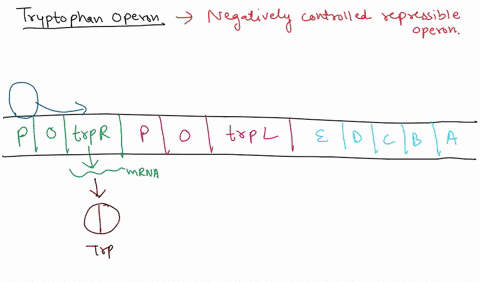 Tryptophan Operon → Negatively controlled repressible
operon.
P O trpR P O trpL E D C B A
mRNA
Trp